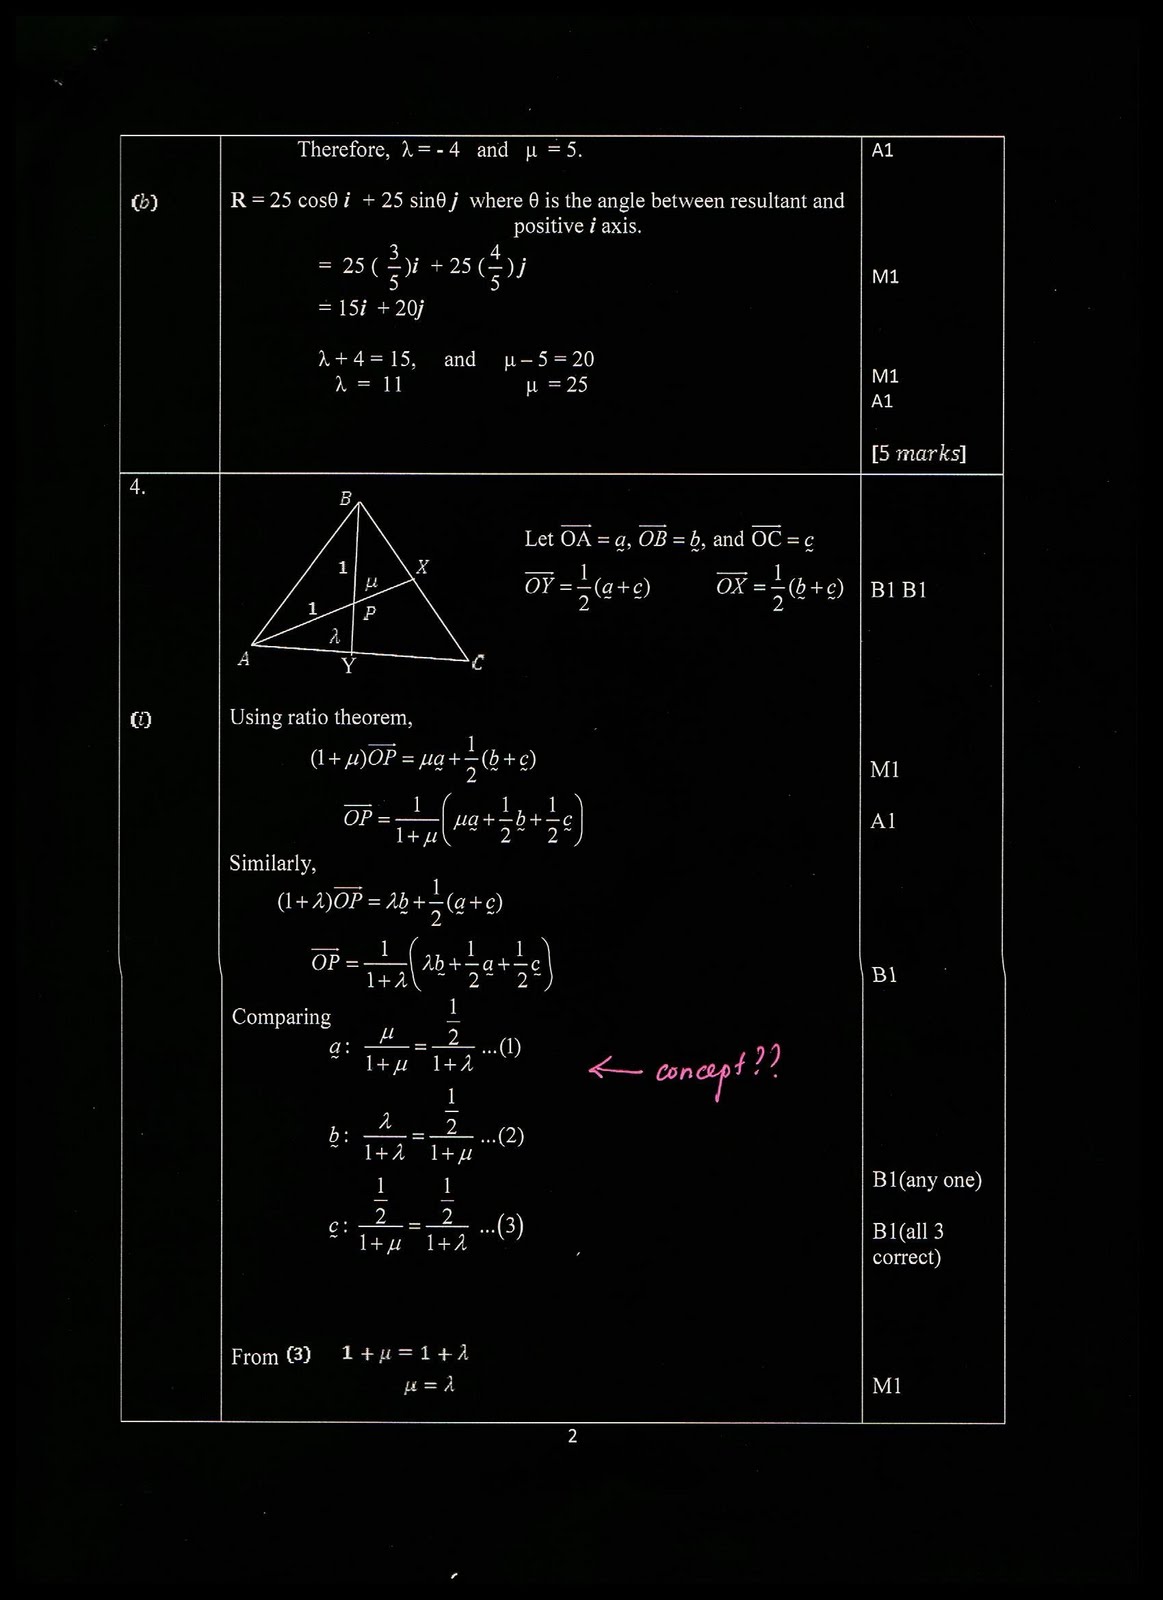 Therefore, λ = - 4 and μ = 5. A1
(b) R = 25 cosθ i + 25 sinθ j where θ is the angle between resultant and
positive i axis.
= 25 ( 3/5 )i + 25 ( 4/5 ) j M1
= 15i + 20j
λ + 4 = 15, and μ – 5 = 20 M1
λ = 11 μ = 25 A1
[5 marks]
4.
B
1
X
μ
1
P
λ
A
Y
C
Let OA = a, OB = b, and OC = c
OY = 1/2 (a + c) OX = 1/2 (b + c) B1 B1
(i) Using ratio theorem,
(1 + μ)OP = μa + 1/2 (b + c) M1
OP = 1/(1 + μ) (μa + 1/2 b + 1/2 c) A1
Similarly,
(1 + λ)OP = λb + 1/2 (a + c)
OP = 1/(1 + λ) (λb + 1/2 a + 1/2 c) B1
Comparing
a : μ/(1 + μ) = (1/2)/(1 + λ) ...(1)
← concept??
b : λ/(1 + λ) = (1/2)/(1 + μ) ...(2)
B1(any one)
c : (1/2)/(1 + μ) = (1/2)/(1 + λ) ...(3)
B1(all 3
correct)
From (3) 1 + μ = 1 + λ
μ = λ M1
2